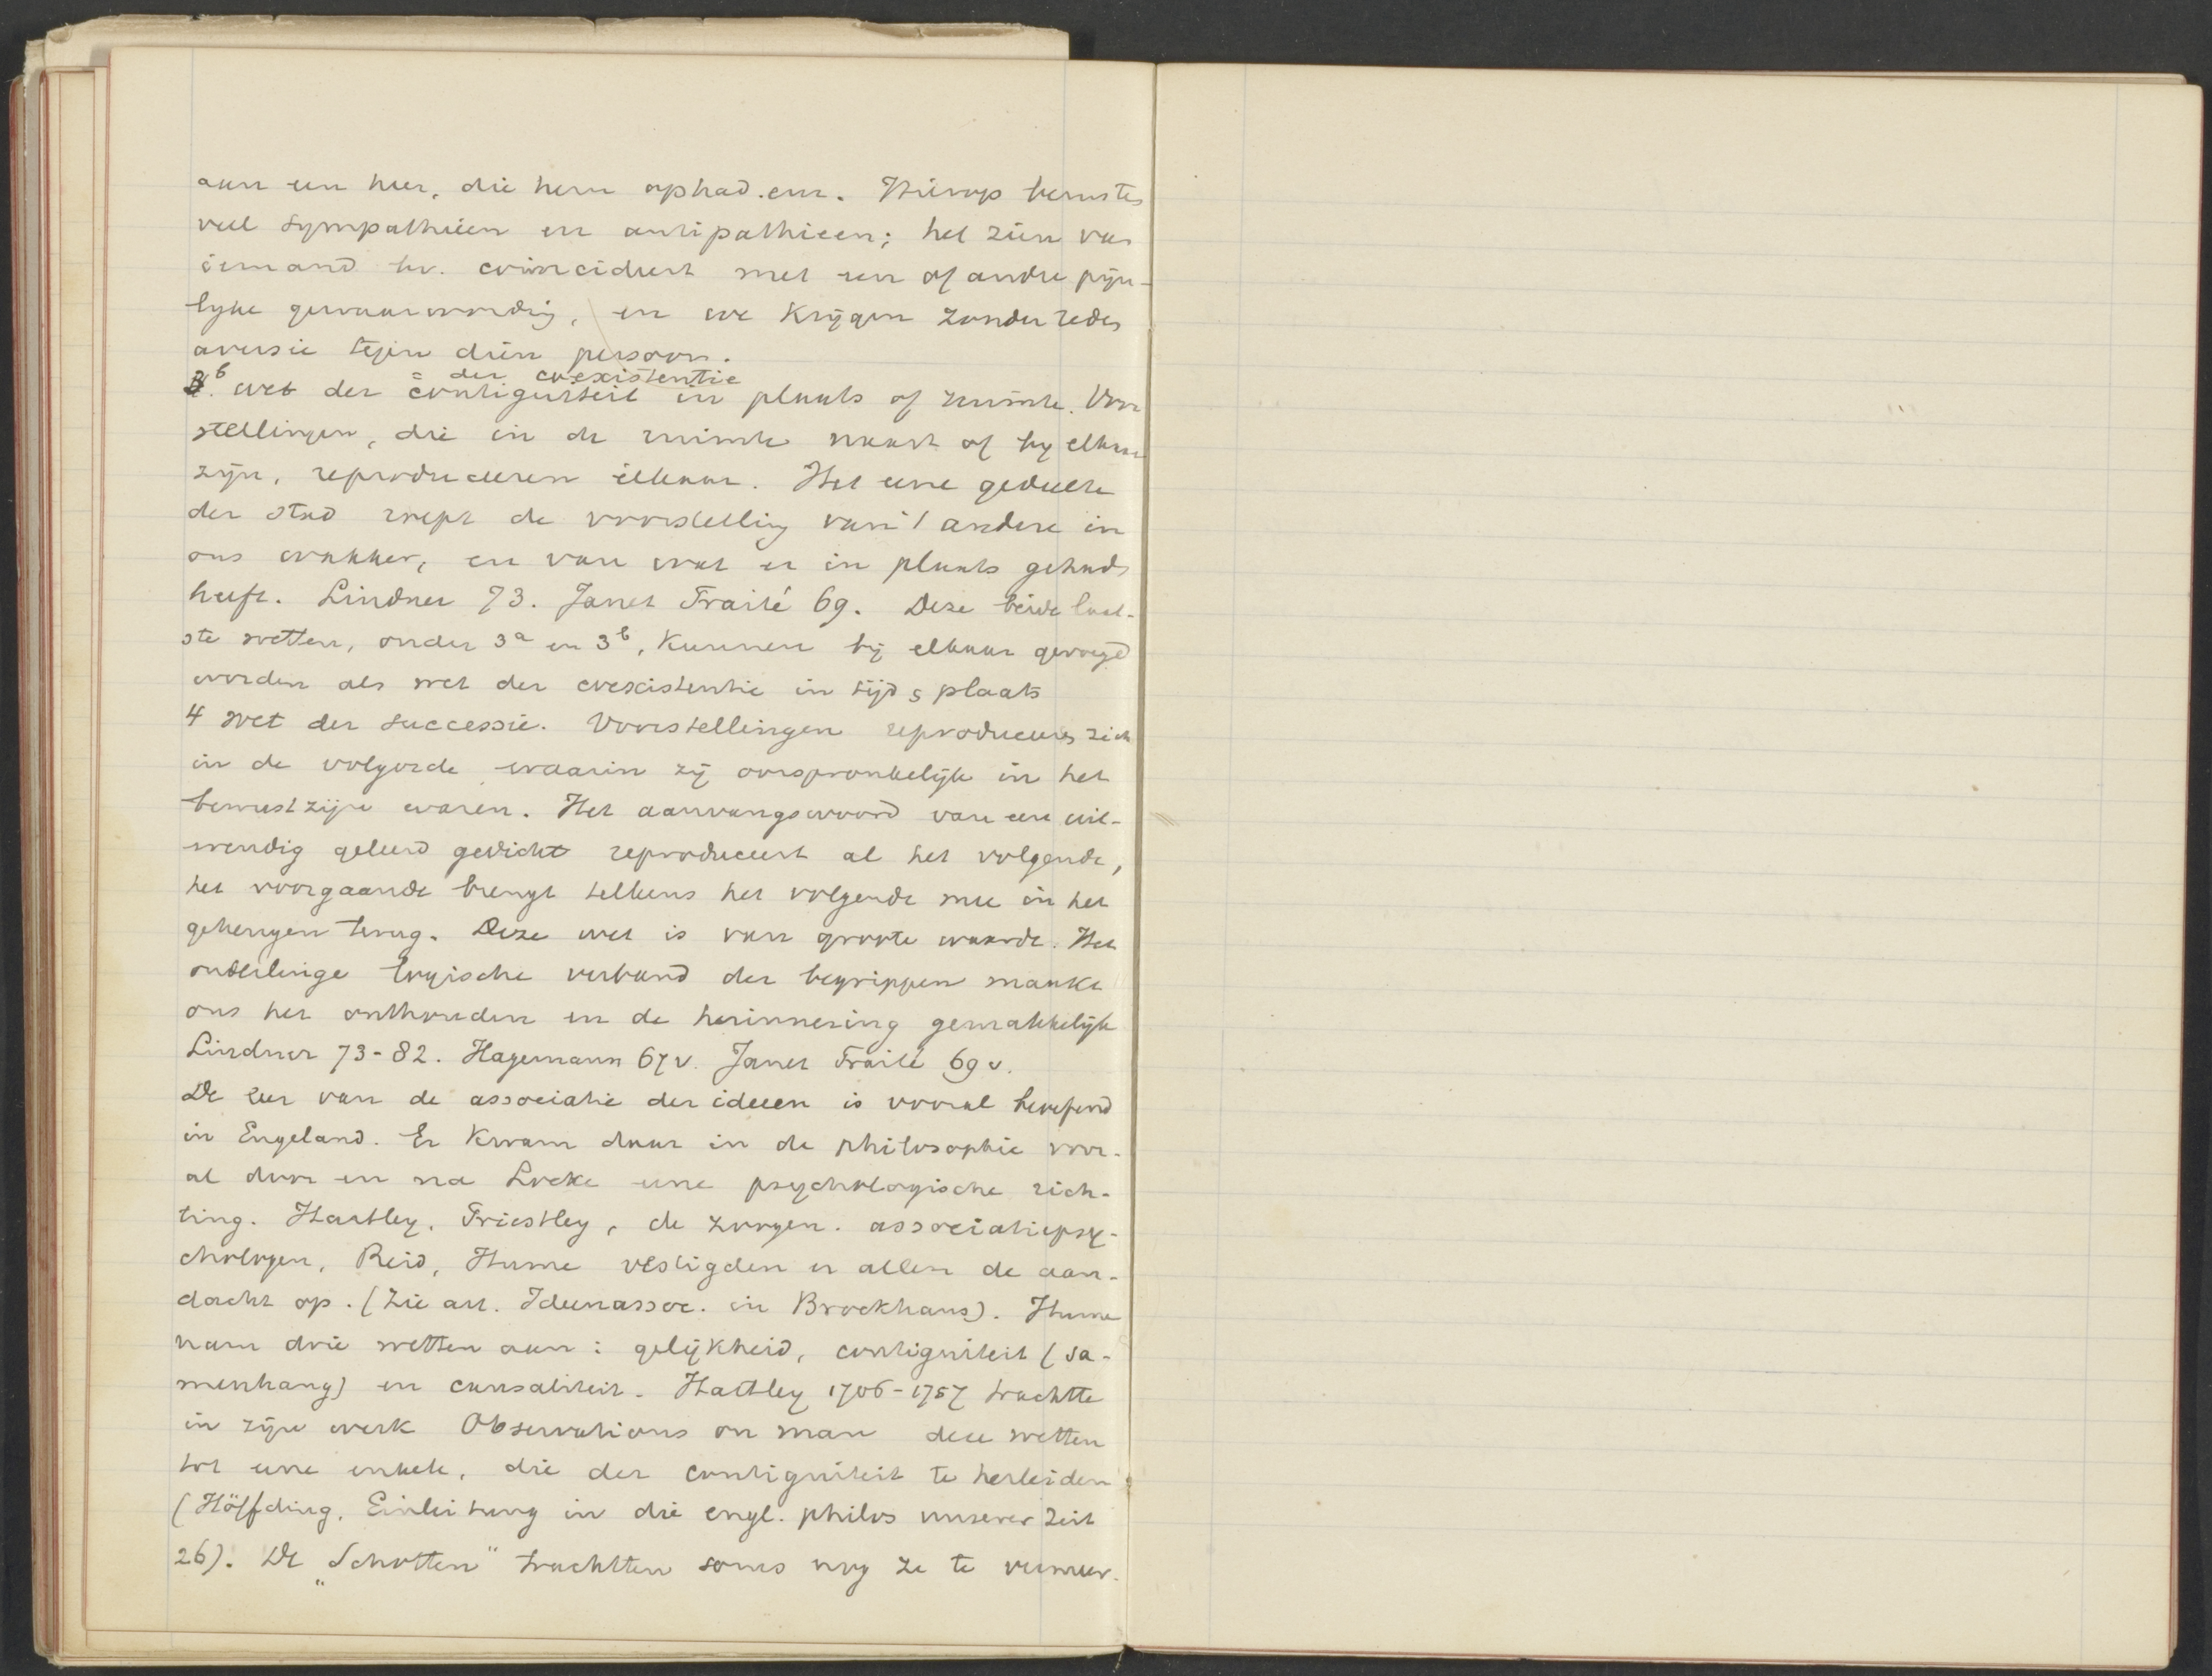 aan een heer, die hem ophad. enz. Hierop berusten
veel sympathieën en antipathieen; het zien van
iemand bv. coincideert met een of andre pijn-
lijke gewaarwording, en we krijgen zonder reden
aversie tegen dien persoon.
= der coexistentie
3b. wet der contiguiteit in plaats of ruimte. Voor
stellingen, die in de ruimte naast of bij elkaar
zijn, reproduceeren elkaar. Het eene gedeelte
der stad roept de voorstelling van 't andere in
ons wakker, en van wat er in plaats gehad
heeft. Lindner 73. Janet Traité 69. Deze beide laat-
ste wetten, onder 3a en 3b, kunnen bij elkaar gevoegd
worden als wet der coexistentie in tijd & plaats
4 wet der successie. Voorstellingen reproduceeren zich
in de volgorde waarin zij oorspronkelijk in het
bewustzijn waren. Het aanvangswoord van een uit-
wendig geleerd gedicht reproduceert al het volgende,
het voorgaande brengt telkens het volgende mee in het
geheugen terug. Deze wet is van groote waarde. Het
onderlinge logische verband der begrippen maakt
ons het onthouden en de herinnering gemakkelijk
Lindner 73-82. Hagemann 67v. Janet Traité 69v.
De leer van de associatie der ideeen is vooral beoefend
in Engeland. Er kwam daar in de philosophie voor-
al door en na Locke eene psychologische rich-
ting. Hartley, Priestley, de zoogen. associatiepsy-
chologen, Reid, Hume vestigden er allen de aan-
dacht op. (Zie art. Ideenassoc. in Brockhaus). Hume
nam drie wetten aan: gelijkheid, contiguiteit (sa-
menhang) en causaliteit. Hartley 1706-1757 trachtte
in zijn werk Observations on man deze wetten
tot eene enkele, die der contiguiteit te herleiden
(Höffding, Einleitung in die engl. philos unserer Zeit
26). De „Schotten" trachtten soms nog ze te vermeer-